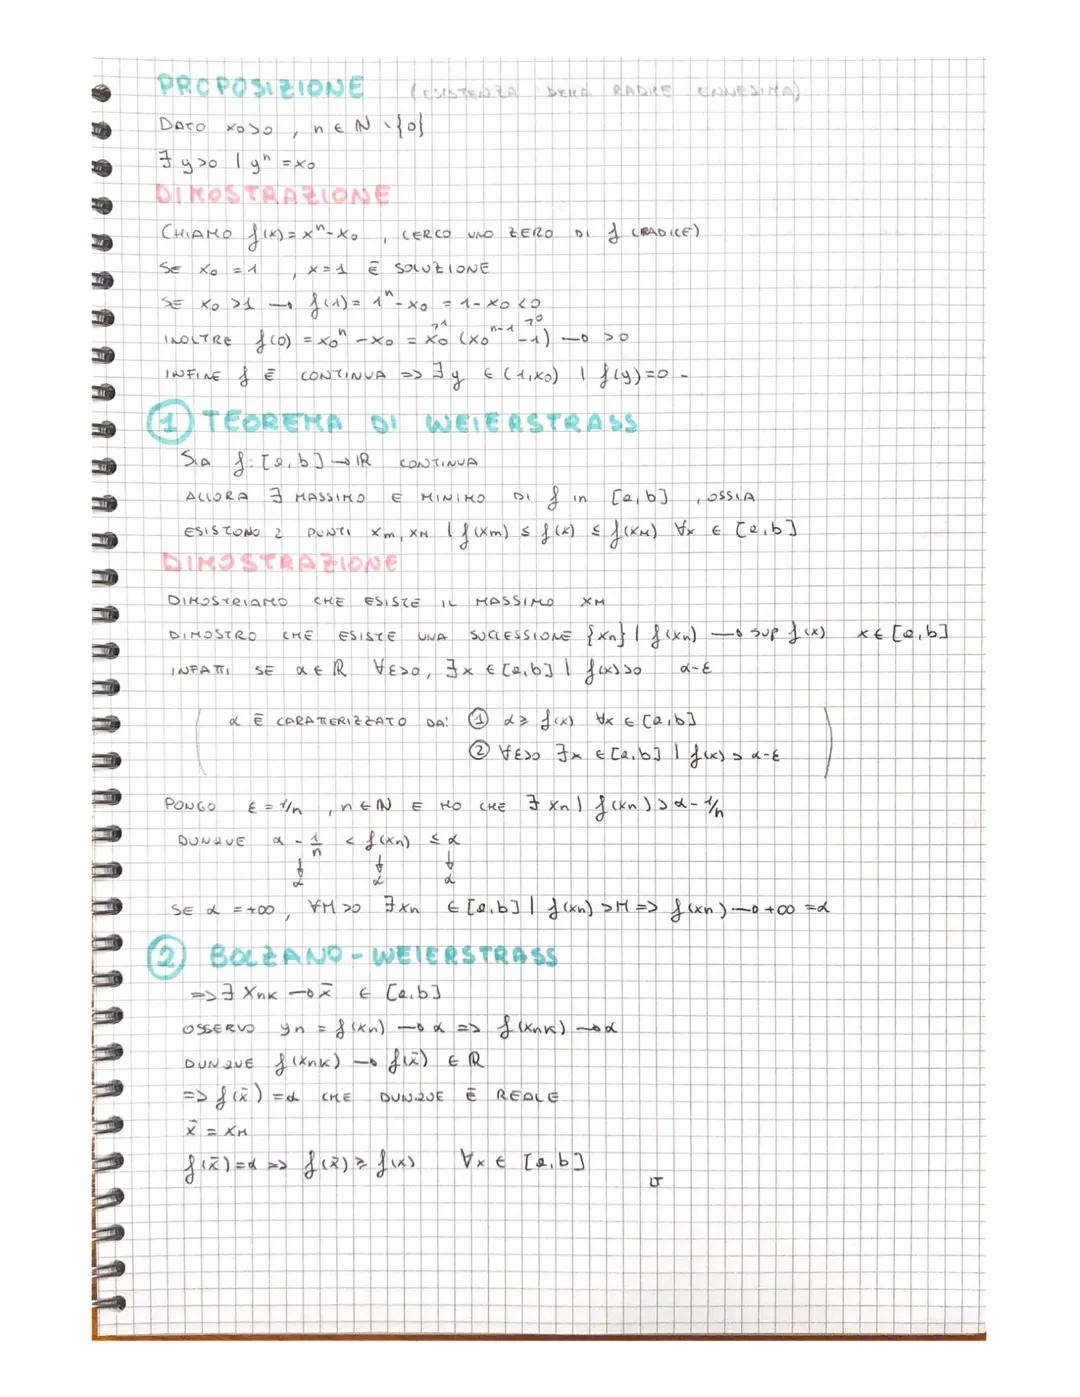 PROPOSIZIONE (ESISTENZA DELLA RADICE ENNESIMA)
DATO x0>0 , n ∈ ℕ \ {0}
∃ y>0 | yⁿ = x0
DIMOSTRAZIONE
CHIAMO f(x) = xⁿ - x0 , CERCO UNO ZERO DI f (RADICE)
SE x0 = 1 , x = 1 È SOLUZIONE
SE x0 >1 → f(1) = 1ⁿ - x0 = 1 - x0 < 0
>1 >0
INOLTRE f(0) = x0ⁿ - x0 = x0 (x0ⁿ⁻¹ - 1) → >0
INFINE f È CONTINUA => ∃ y ∈ (1,x0) | f(y)=0 -
① TEOREMA DI WEIERSTRASS
SIA f: [a,b] → ℝ CONTINUA
ALLORA ∃ MASSIMO E MINIMO DI f in [a,b] , OSSIA
ESISTONO 2 PUNTI xm, xM | f(xm) ≤ f(x) ≤ f(xM) ∀x ∈ [a,b]
DIMOSTRAZIONE
DIMOSTRIAMO CHE ESISTE IL MASSIMO xM
DIMOSTRO CHE ESISTE UNA SUCCESSIONE {xn} | f(xn) → sup f(x) x ∈ [a,b]
INFATTI SE α ∈ ℝ ∀ε>0, ∃x ∈ [a,b] | f(x)>0 α-ε
( α È CARATTERIZZATO DA: ① α ≥ f(x) ∀x ∈ [a,b]
② ∀ε>0 ∃x ∈ [a,b] | f(x) > α-ε )
PONGO ε = 1/n , n ∈ ℕ E HO CHE ∃ xn | f(xn) > α - 1/n
DUNQUE α - 1/n < f(xn) ≤ α
↓ ↓ ↓
α α α
SE α = +∞ , ∀M>0 ∃xn ∈ [a,b] | f(xn) > M => f(xn) → +∞ = α
② BOLZANO - WEIERSTRASS
=> ∃ xnk → x̄ ∈ [a,b]
OSSERVO yn = f(xn) → α => f(xnk) → α
DUNQUE f(xnk) → f(x̄) ∈ ℝ
=> f(x̄) = α CHE DUNQUE È REALE
x̄ = xM
f(x̄) = α => f(x̄) ≥ f(x) ∀x ∈ [a,b]